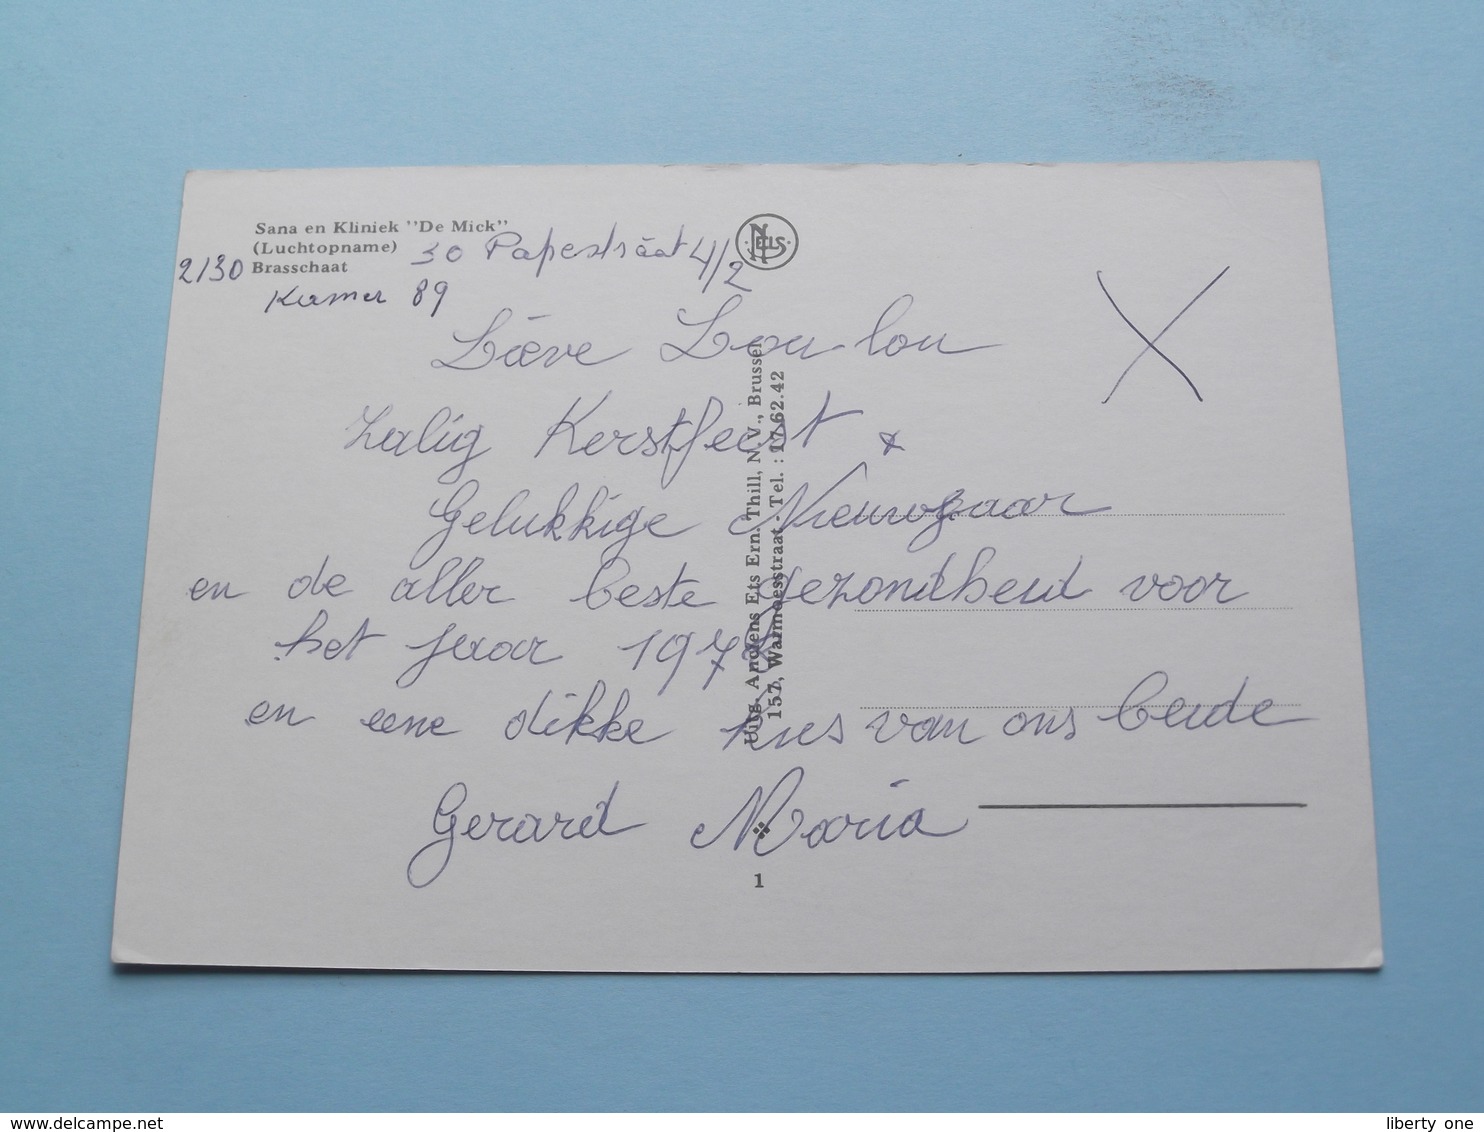 Sana en Kliniek "De Mick"
(Luchtopname)
2130 Brasschaat
30 Papestraat 4/2
Kamer 89
NELS
Lieve Lou-lou
Zalig Kerstfeest &
Gelukkige Nieuwjaar
en de aller beste gezondheid voor
het jaar 1978
en eene dikke kus van ons beide
Gerard Maria
Uitg. Anciens Ets Ern. Thill, N.V., Brussel
157, Warmoesstraat - Tel. : 17.62.42
1
www.delcampe.net
liberty one